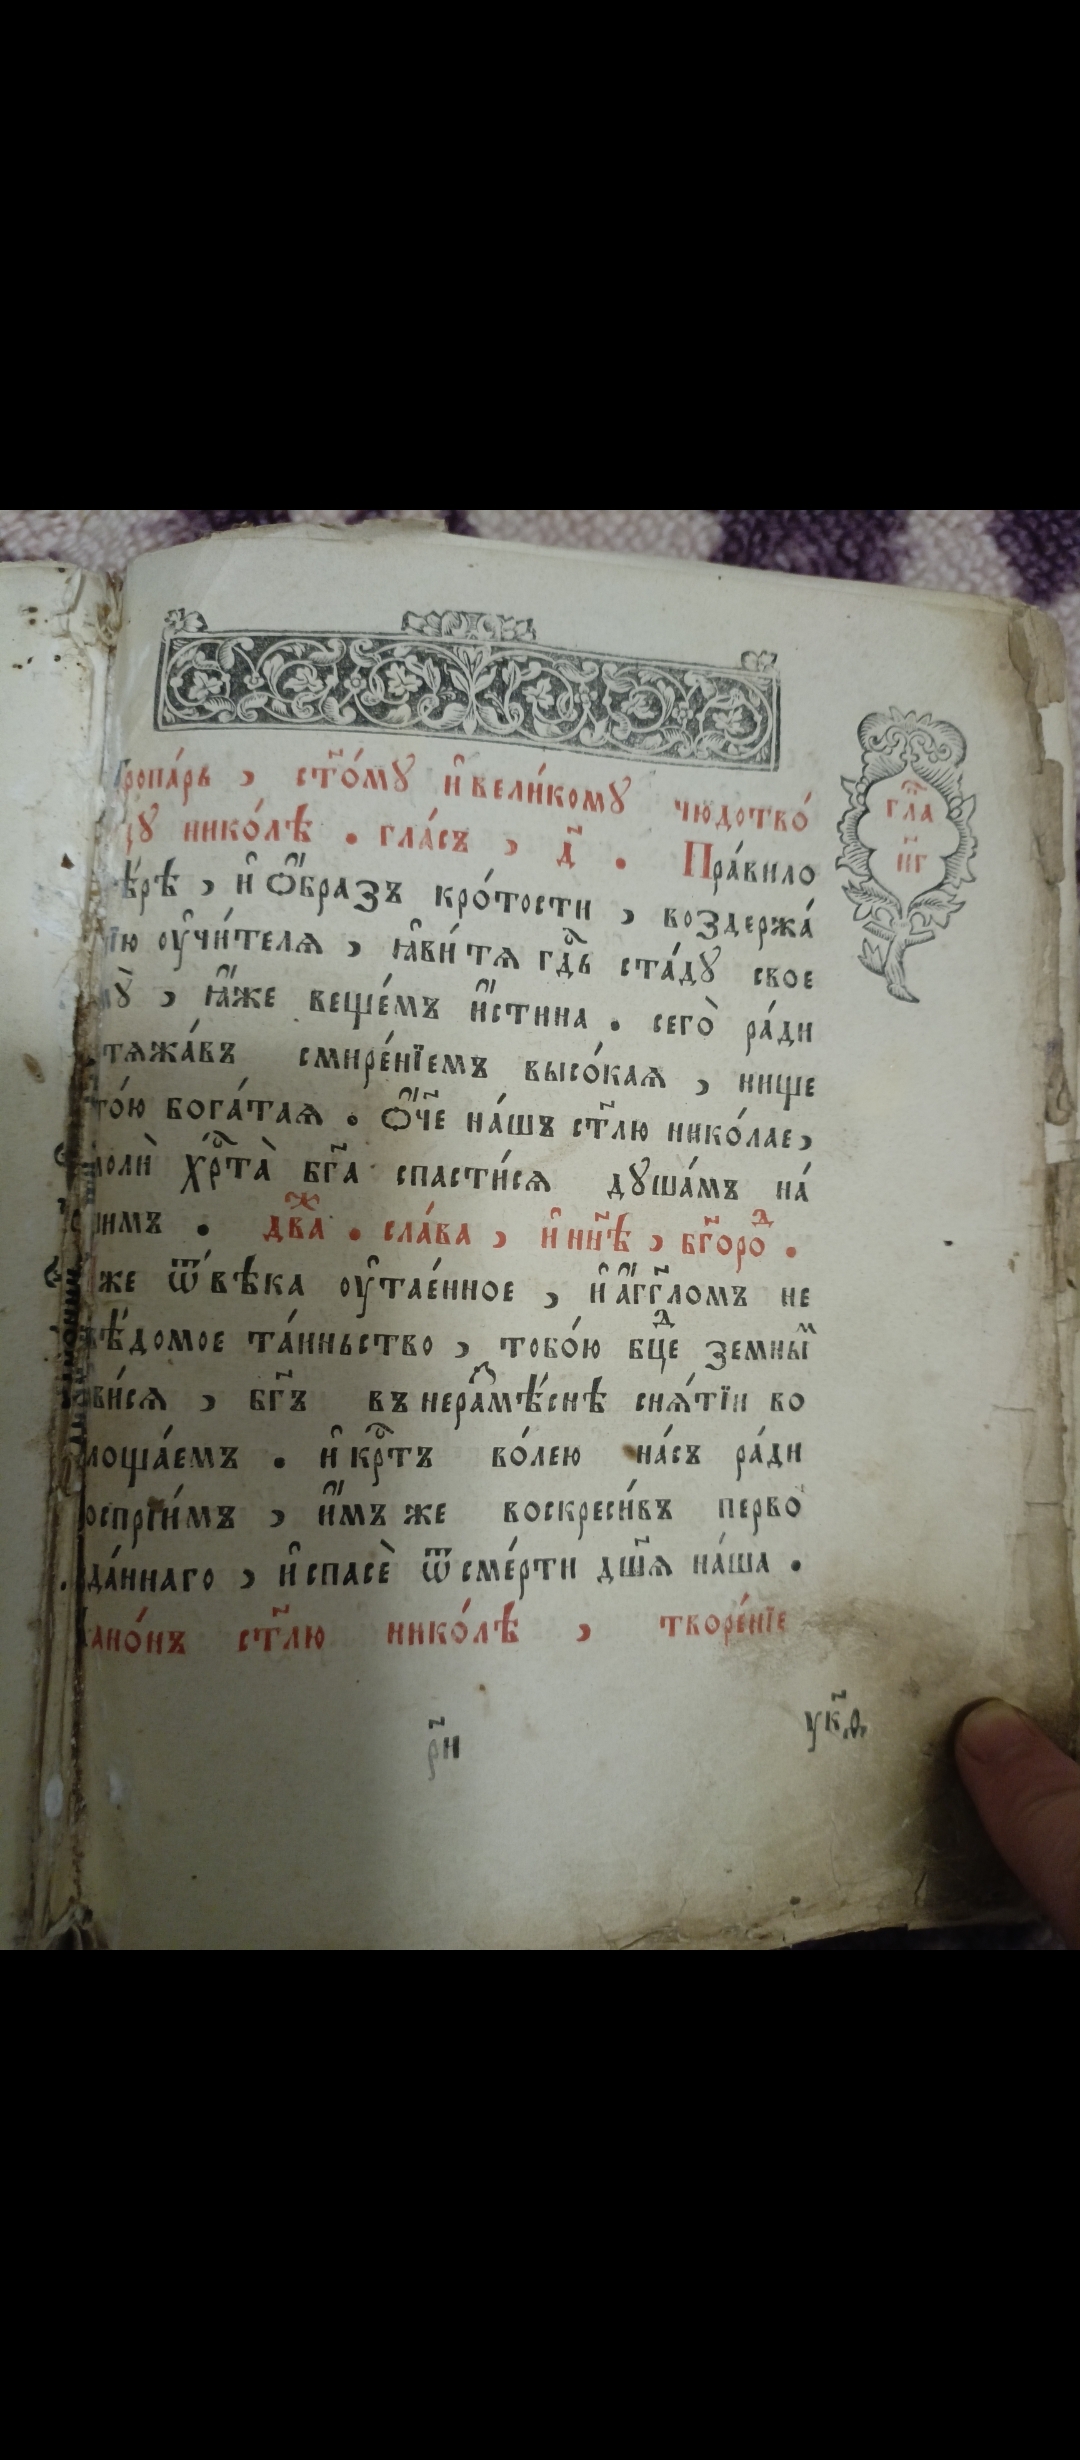 Тропа́рь , ст҃о́мꙋ и҆ вели́комꙋ чюдотво́
цꙋ нико́лѣ . гла́съ , д҃ . Пра́вило
вѣ́рѣ , и҆ Ѻ҆́бразъ кро́тости , воздержа́
нїю оу҆чи́телѧ , ꙗ҆ви́ тѧ гдⷭ҇ь ста́дꙋ свое
мꙋ̀ , ꙗ҆́же веще́мъ и҆́стина . сего̀ ра́ди
стѧжа́въ смире́нїемъ высо́каѧ , нище
то́ю бога́таѧ . Ѻ҆́ч҃е на́шъ ст҃лю нико́лае ,
молѝ хрⷭ҇та̀ бг҃а спасти́сѧ дꙋша́мъ на́
шимъ . дв҃аⷤ . сла́ва , и҆ нн҃ѣ , бг҃ороⷣ .
же ѿ вѣ́ка оу҆тае́нное , и҆ а҆́гг҃ломъ не
вѣ́домое та́иньство , тобо́ю бцⷣе земны̑ⷨ
ꙗви́сѧ , бг҃ъ въ нераⷥмѣ́снѣ снѧ́тїи во
площа́емъ . и҆ крⷭ҇тъ во́лею на́съ ра́ди
воспрїи́мъ , и҆́мъ же воскреси́въ перво
зда́ннаго , и҆ спасѐ ѿ сме́рти дш҃ѧ на́ша .
Кано́нъ ст҃лю нико́лѣ , творе́нїе
гл҃а
н҃г
р҃н